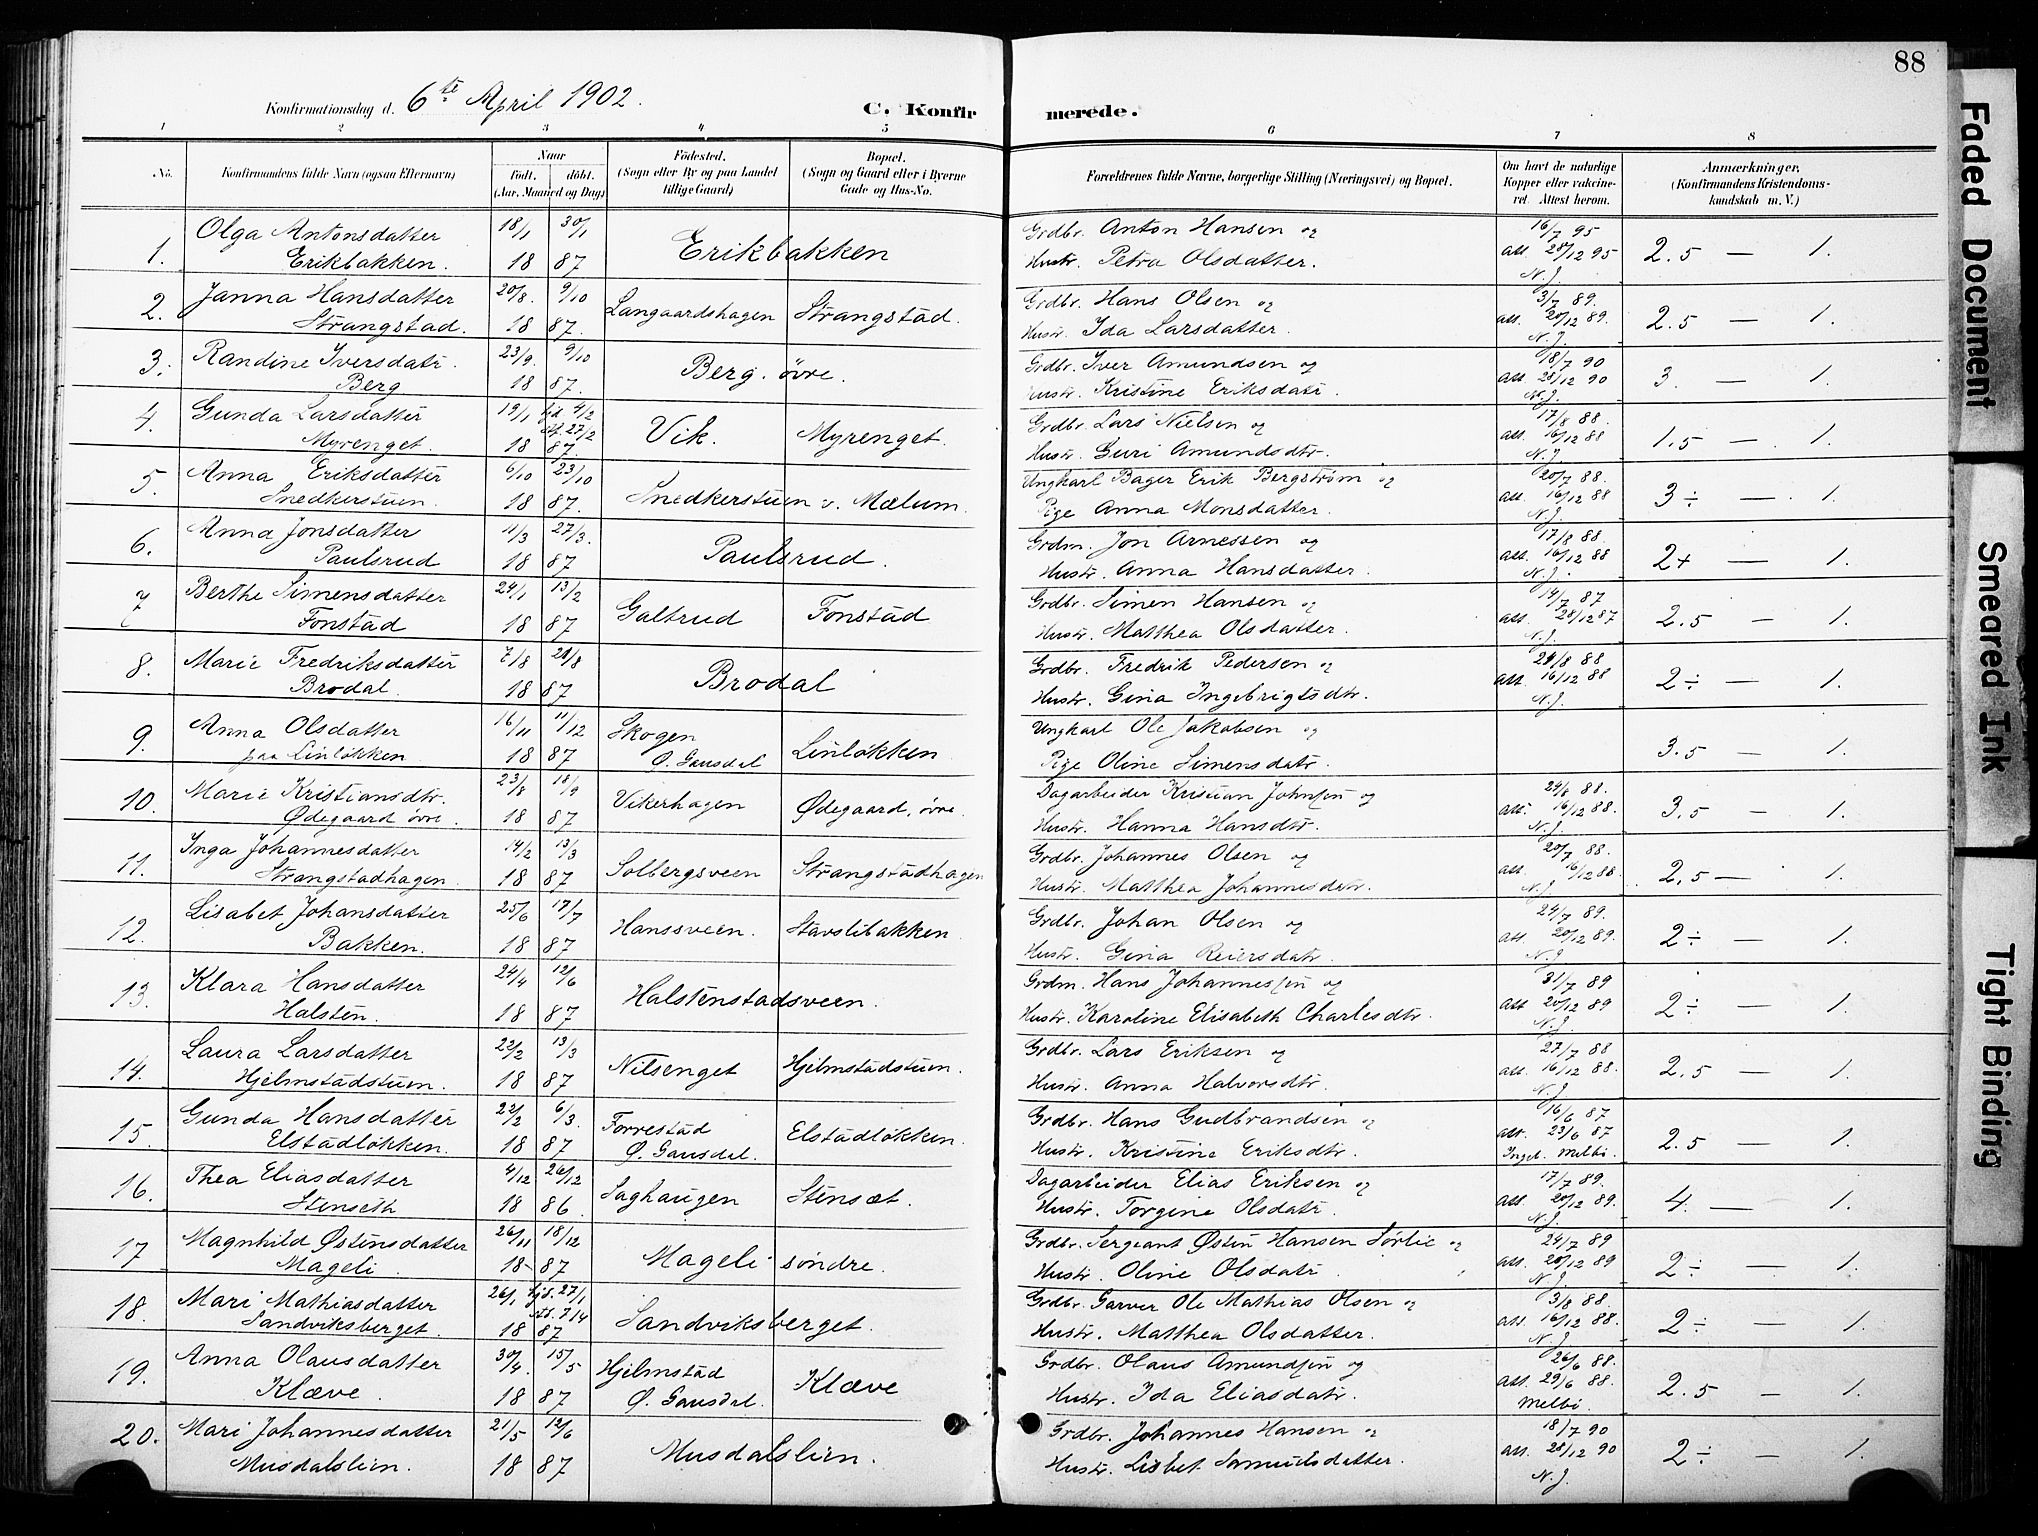 88
Konfirmationsdag d. 6te April 1902.
C. Konfirmerede.
1 2 3 4 5 6 7 8
No. Konfirmandens fulde Navn (ogsaa Efternavn) Naar født. døbt. (Aar, Maaned og Dag) Fødested. (Sogn eller By og paa Landet tillige Gaard) Bopæl. (Sogn og Gaard eller i Byerne Gade og Hus-No. Forældrenes fulde Navne, borgerlige Stilling (Næringsvei) og Bopæl. Om havt de naturlige Kopper eller vaccineret. Attest herom. Anmærkninger. (Konfirmandens Kristendomskundskab m. V.)
1. Olga Antonsdatter 18/1 30/1 Erikbakken Grdbr. Anton Hansen og 16/7 95
Erikbakken. 18 87 Hustr. Petra Olsdatter. att. 28/12 95 N.J. 2.5 — 1.
2. Janna Hansdatter 20/8. 9/10 Langaardshagen Strangstad. Grdbr. Hans Olsen og 3/7 89.
Strangstad. 18 87. Hustr. Ida Larsdatter. att. 20/12 89. N.J. 2.5 — 1.
3. Randine Iversdatr. 23/9. 9/10 Berg. øvre. Grdbr. Iver Amundsen og 18/7 90
Berg 18 87. Hustr. Kristine Eriksdatr. att. 28/12 90 N.J. 3. — 1.
4. Gunda Larsdatter 19/1 hjd. 4/2 stf. 27/2 Vik. Myrenget. Grdbr. Lars Nielsen og 17/8 88.
Myrenget. 18 87. Hustr. Guri Amundsdtr. att. 16/12 88 N.J. 1.5 — 1.
5. Anna Eriksdatter 6/10 23/10 Snedkerstuen v. Mælum. Ungkarl Bager Erik Bergstrøm og 20/7 88.
Snedkerstuen. 18 87. Pige Anna Monsdatter. att. 16/12 88 N.J. 3÷ — 1.
6. Anna Jonsdatter 11/3 27/3. Paulsrud. Grdm. Jon Arnessen og 17/8 88.
Paulsrud 18 87 Hustr. Anna Hansdatter. att. 16/12 88 N.J. 2+ — 1.
7 Berthe Simensdatter 24/1 13/2 Galtrud Fonstad Grdbr. Simen Hansen og 14/7 87
Fonstad 18 87 Hustr. Matthea Olsdatter. att. 28/12 87 N.J. 2.5 — 1.
8. Marie Fredriksdatter 7/8 28/8 Brodal Grdbr. Fredrik Pedersen og 24/8 88
Brodal. 18 87 Hustr. Gina Ingebrigtsdtr. att. 16/12 88 N.J. 2÷ — 1.
9. Anna Olsdatter 16/11 11/12 Skogen Ø. Gausdal Linløkken Ungkarl Ole Jakobsen og
paa Linløkken 18 87 Pige Oline Simensdatr. 3.5 — 1.
10. Marie Kristiansdtr. 23/8 18/9 Vikerhagen Ødegaard, øvre. Dagarbeider Kristian Johnsen og 24/8 88.
Ødegaard øvre. 18 87 Hustr. Hanna Hansdtr. att. 16/12 88. N.J. 3.5 — 1.
11. Inga Johannesdatter 14/2 13/3 Solbergsveen Strangstadhagen Grdbr. Johannes Olsen og 20/7 88.
Strangstadhagen. 18 87 Hustr. Matthea Johannesdatr. att. 16/12 88. N.J. 2.5 — 1.
12. Lisabet Johansdatter 25/6 17/7 Hanssveen. Stavslibakken Grdbr. Johan Olsen og 24/7 89.
Bakken. 18 87 Hustr. Gina Reiersdatr. att. 20/12 89. N.J. 2÷ — 1.
13. Klara Hansdatter 24/4 12/6 Halstenstadsveen. Grdm. Hans Johannesen og 31/7 89
Halsten. 18 87 Hustr. Karoline Elisabeth Charlesdtr. att 20/12 89 N.J. 2÷ — 1.
14. Laura Larsdatter 22/2 13/3 Nilsenget Hjelmstadstuen. Grdbr. Lars Eriksen og 27/7 88
Hjelmstadstuen. 18 87 Hustr. Anna Halvorsdtr. att. 16/12 88. N.J. 2.5 — 1.
15. Gunda Hansdatter 22/2 6/3. Forrestad Ø. Gausdal. Elstadløkken. Grdbr. Hans Gudbrandsen og 16/6 87
Elstadløkken. 18 87 Hustr. Kristine Eriksdtr. att. 23/6 87 Inget. Melbö. 2.5 — 1.
16. Thea Eliasdatter 4/12 26/12 Saghaugen Stensæt. Dagarbeider Elias Eriksen og 17/7 89.
Stenseth 18 86 Hustr. Torgine Olsdatr. att 20/12 89. N.J. 4. — 1.
17 Magnhild Østensdatter 26/11 18/12 Mageli søndre. Grdbr. Sergeant Østen Hansen Sørlie og 24/7 89
Mageli. 18 87 Hustr. Oline Olsdatr. att. 20/12 89 N.J. 2÷ — 1.
18. Mari Mathiasdatter 26/1 hjd. 27/1 Sandviksberget. Grdbr. Garver Ole Mathias Olsen og 3/8 88.
Sandviksberget. 18 87 Hustr. Matthea Olsdatter. att. 16/12 88. N.J. 2÷ — 1.
19. Anna Olausdatter 30/4. 15/5 Hjelmstad Ø. Gausdal. Klæve Grdbr. Olaus Amundsen og 26/6 88.
Klæve. 18 87 Hustr. Ida Eliasdatr. att. 29/6 88 Melbö. 2.5 — 1.
20. Mari Johannesdatter 21/5 12/6 Musdalslien. Grdbr. Johannes Hansen og 18/7 90
Musdalslien. 18 87 Hustr. Lisbet Samuelsdatter. att. 28/12 90 N.J. 2÷ — 1.
Faded Document
Smeared Ink
Tight Binding